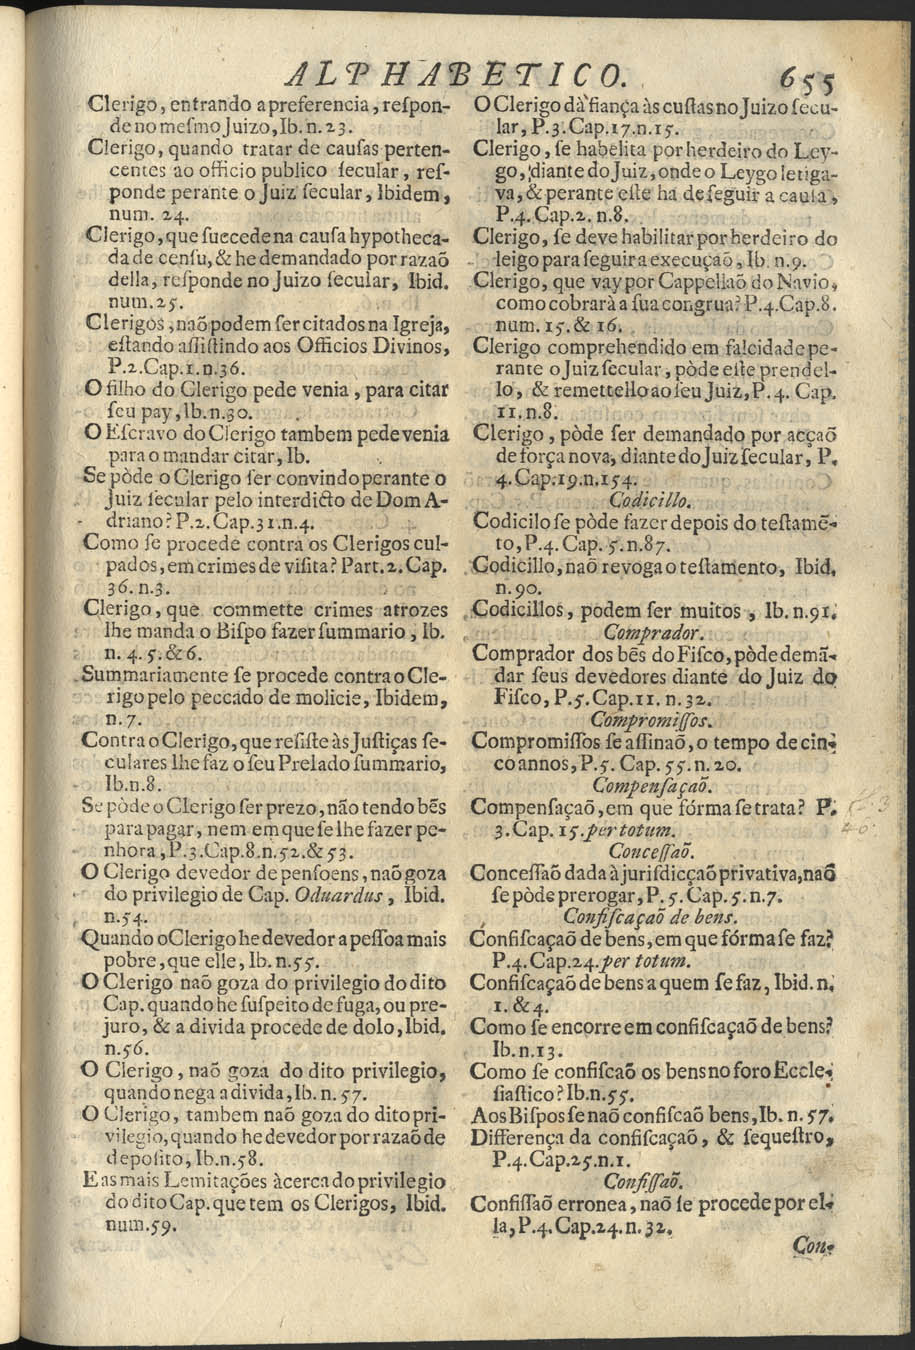 ALPHABETICO. 655
Clerigo, entrando a preferencia, respon-
de no mesmo Juizo, Ib. n. 23.
Clerigo, quando tratar de causas perten-
centes ao officio publico secular, res-
ponde perante o Juiz secular, Ibidem,
num. 24.
Clerigo, que succede na causa hypotheca-
da de censu, & he demandado por razaõ
della, responde no Juizo secular, Ibid.
num. 25.
Clerigos, naõ podem ser citados na Igreja,
estando assistindo aos Officios Divinos,
P.2.Cap.1.n.36.
O filho do Clerigo pede venia, para citar
seu pay, Ib. n. 30.
O Escravo do Clerigo tambem pede venia
para o mandar citar, Ib.
Se pòde o Clerigo ser convindo perante o
Juiz secular pelo interdicto de Dom A-
driano? P.2.Cap.31.n.4.
Como se procede contra os Clerigos cul-
pados, em crimes de visita? Part. 2. Cap.
36. n.3.
Clerigo, que commette crimes atrozes
lhe manda o Bispo fazer summario, Ib.
n. 4. 5. & 6.
Summariamente se procede contra o Cle-
rigo pelo peccado de molicie, Ibidem,
n. 7.
Contra o Clerigo, que resiste às Justiças se-
culares lhe faz o seu Prelado summario,
Ib.n.8.
Se pòde o Clerigo ser prezo, não tendo bẽs
para pagar, nem em que se lhe fazer pe-
nhora, P.3.Cap.8.n.52.& 53.
O Clerigo devedor de pensoens, naõ goza
do privilegio de Cap. Oduardus, Ibid.
n.54.
Quando o Clerigo he devedor a pessoa mais
pobre, que elle, Ib. n.55.
O Clerigo naõ goza do privilegio do dito
Cap. quando he suspeito de fuga, ou pre-
juro, & a divida procede de dolo, Ibid.
n.56.
O Clerigo, naõ goza do dito privilegio,
quando nega a divida, Ib. n. 57.
O Clerigo, tambem naõ goza do dito pri-
vilegio, quando he devedor por razaõ de
deposito, Ib.n.58.
E as mais Lemitações àcerca do privilegio
do dito Cap. que tem os Clerigos, Ibid.
num.59.
O Clerigo dà fiança às custas no Juizo secu-
lar, P.3.Cap.17.n.15.
Clerigo, se habelita por herdeiro do Ley-
go, diante do Juiz, onde o Leygo letiga-
va, & perante este ha de seguir a causa,
P.4.Cap.2. n.8.
Clerigo, se deve habilitar por herdeiro do
leigo para seguir a execuçaõ, Ib. n.9.
Clerigo, que vay por Cappellaõ do Navio,
como cobrarà a sua congrua? P.4.Cap.8.
num. 15. & 16.
Clerigo comprehendido em falcidade pe-
rante o Juiz secular, pòde este prendel-
lo, & remettello ao seu Juiz, P.4. Cap.
11.n.8.
Clerigo, pòde ser demandado por acçaõ
de força nova, diante do Juiz secular, P.
4.Cap.19.n.154.
Codicillo.
Codicilo se pòde fazer depois do testamẽ-
to, P.4. Cap. 5.n.87.
Codicillo, naõ revoga o testamento, Ibid.
n.90.
Codicillos, podem ser muitos, Ib. n.91.
Comprador.
Comprador dos bẽs do Fisco, pòde demã-
dar seus devedores diante do Juiz do
Fisco, P.5.Cap.11. n. 32.
Compromissos.
Compromissos se assinaõ, o tempo de cin-
co annos, P.5. Cap. 55. n. 20.
Compensaçaõ.
Compensaçaõ, em que fórma se trata? P.
3. Cap. 15. per totum.
Concessaõ.
Concessaõ dada à jurisdicçaõ privativa, naõ
se pòde prerogar, P. 5. Cap. 5. n. 7.
Confiscaçaõ de bens.
Confiscaçaõ de bens, em que fórma se faz?
P.4.Cap.24. per totum.
Confiscaçaõ de bens a quem se faz, Ibid. n.
1. & 4.
Como se encorre em confiscaçaõ de bens?
Ib.n.13.
Como se confiscaõ os bens no foro Eccle-
siastico? Ib.n.55.
Aos Bispos se naõ confiscaõ bens, Ib. n. 57.
Differença da confiscaçaõ, & sequestro,
P.4.Cap.25.n.1.
Confissaõ.
Confissaõ erronea, naõ se procede por el-
la, P.4.Cap.24.n.32.
Con-